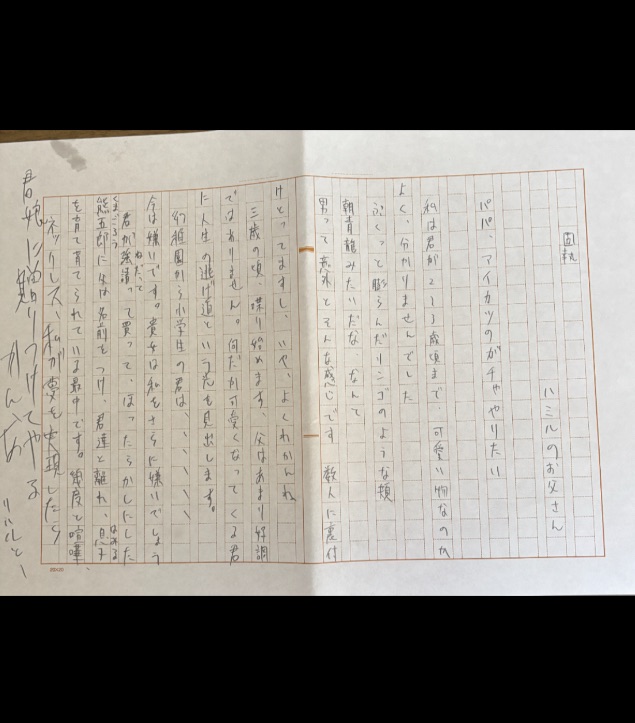 固執
ハミルのお父さん
パパ、アイカツのガチャやりたい
私は君が2〜3歳頃まで、可愛い物なのか
よく、分かりませんでした
ぷくっと膨らんだリンゴのような頬
朝青龍みたいだな、なんて
男って意外とそんな感じです 数人に産付
けとってますし、いや、よくわかんね
三歳の頃、喋り始めます、父はあまり好調
ではありません。何だか可愛くなってくる君
に人生の逃げ道という光を見出します。
幼稚園から小学生の君は、、、、、
今は嫌いです。貴女は私をさらに嫌いでしょう
君が強請って買って、ほったらかしにした
ねだ
熊五郎に名前をつけ、君達と離れ、息子
くまごろう
を育て育てられている最中です。幾度と喧嘩、
ネックレス、私が夢を実現したら
君娘に贈りつけてやる